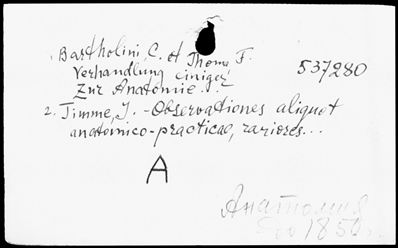 Bartholini, C. et Thoma F.
Verhandlung einiger
Zur Anatomie...
537280
2. Timme, J. - Observationes aliquot
anatomico-practicae, rariores...
A
Анатомия
до 1850 г.